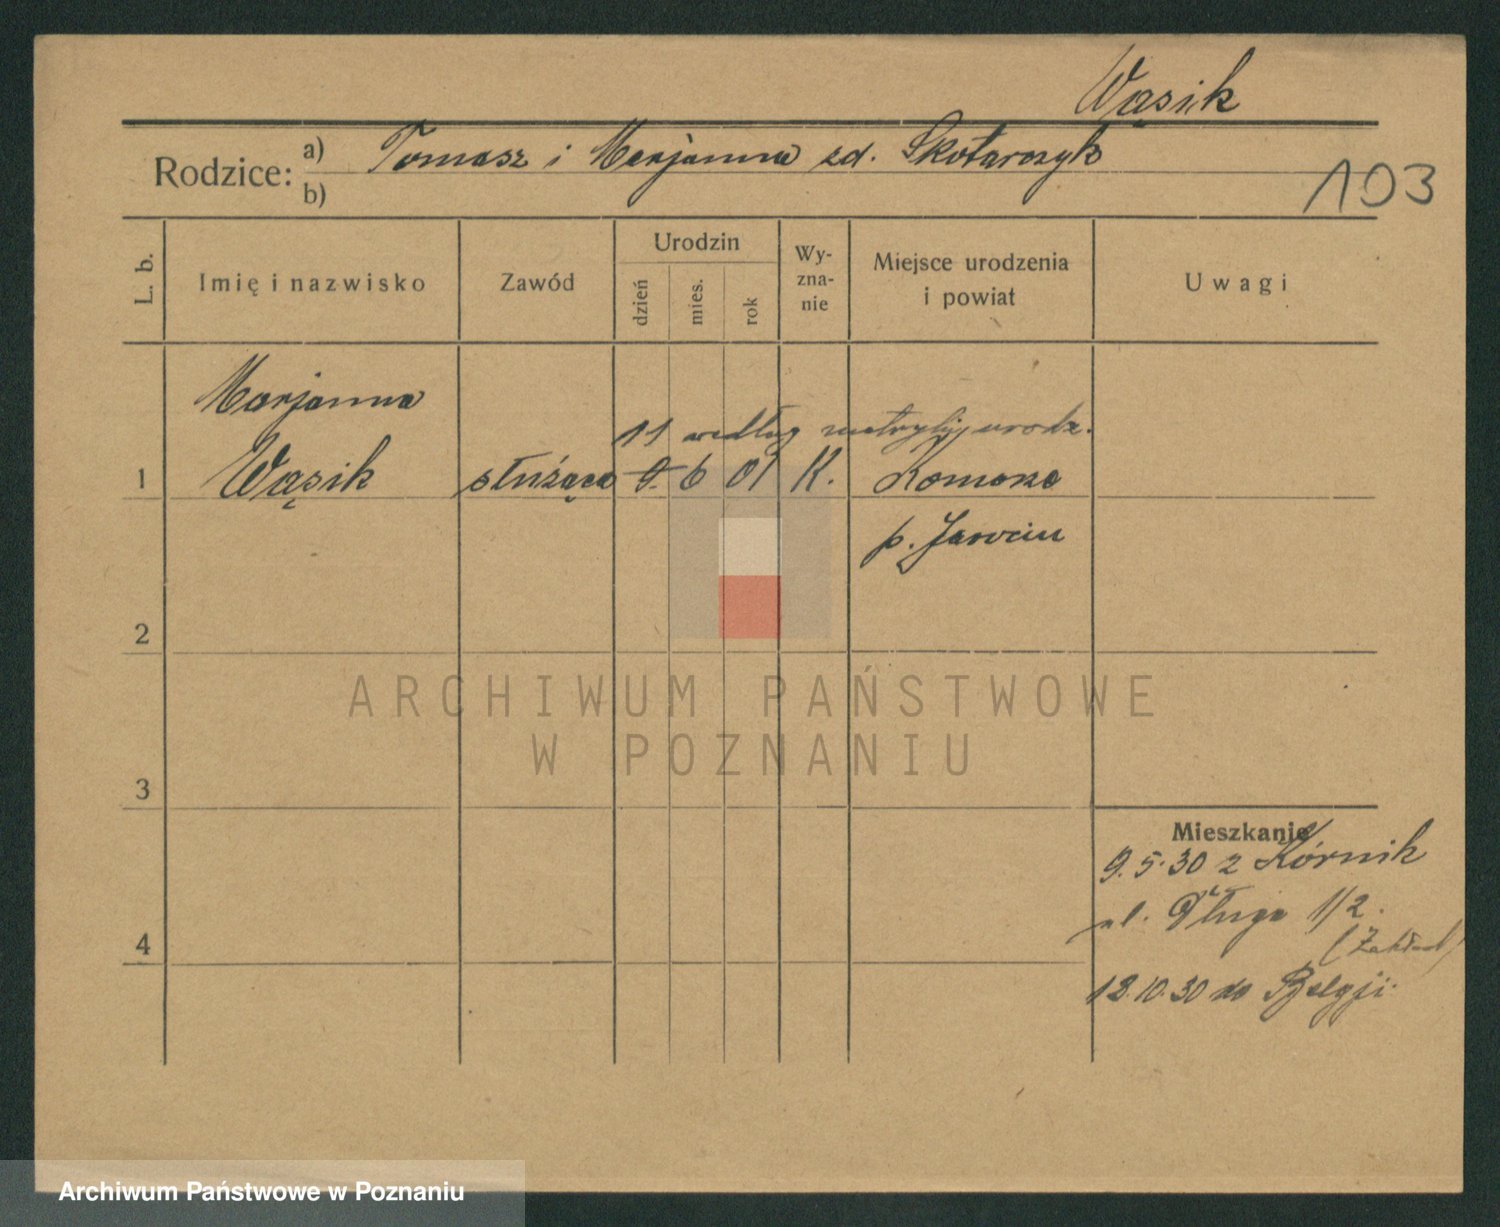 Wąsik
Rodzice: a) Tomasz i Marjanna zd. Skotarczyk
b)
103
L. b.
Imię i nazwisko
Zawód
Urodzin
dzień
mies.
rok
Wy-
zna-
nie
Miejsce urodzenia
i powiat
Uwagi
Marjanna
11 według metryki urodz.
1 Wąsik służąca 9. 6 01 K. Komorze
p. Jarocin
2
ARCHIWUM PAŃSTWOWE
W POZNANIU
3
Mieszkanie
9.5.30 z Kórnik
ul. Długa 1/2.
4
(Zakład)
18.10.30 do Belgji.
Archiwum Państwowe w Poznaniu